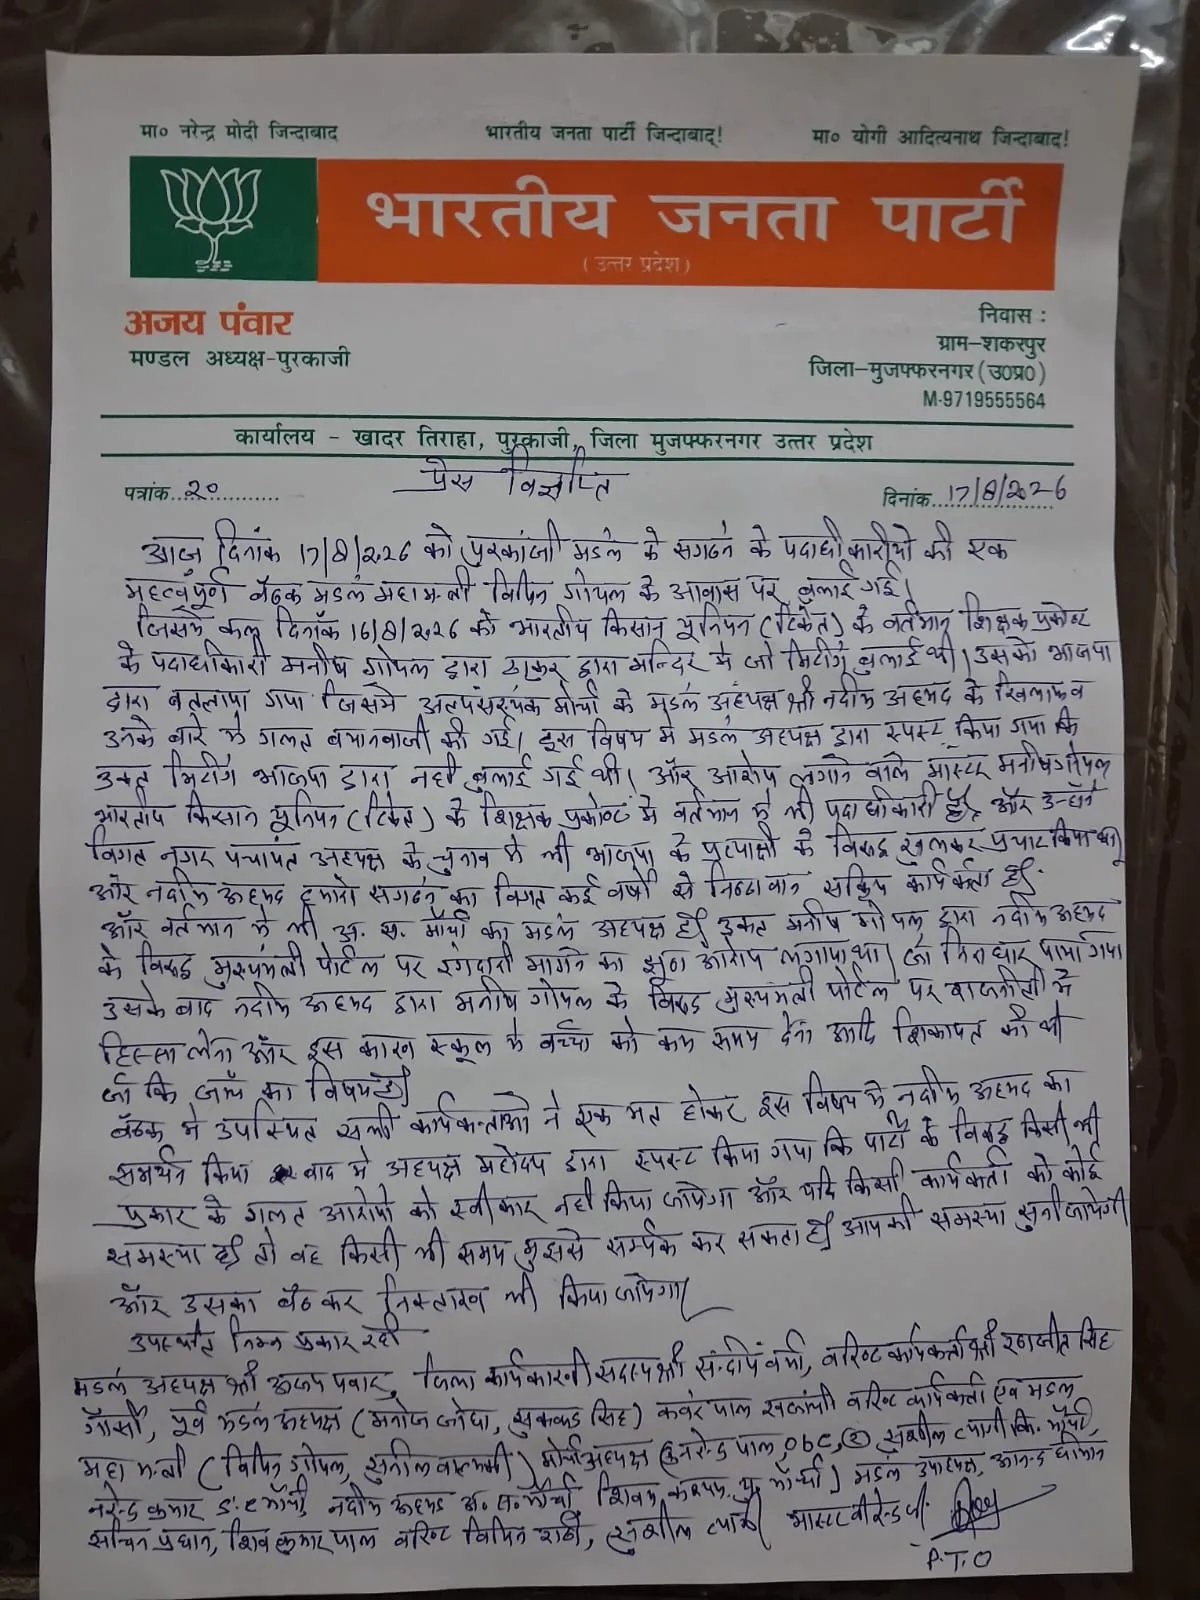 मा० नरेन्द्र मोदी जिन्दाबाद भारतीय जनता पार्टी जिन्दाबाद! मा० योगी आदित्यनाथ जिन्दाबाद!
भारतीय जनता पार्टी
(उत्तर प्रदेश)
अजय पंवार
मण्डल अध्यक्ष-पुरकाजी
निवास :
ग्राम-शकरपुर
जिला-मुजफ्फरनगर (उ०प्र०)
M-9719555564
कार्यालय - खादर तिराहा, पुरकाजी, जिला मुजफ्फरनगर उत्तर प्रदेश
प्रेस विज्ञप्ति
पत्रांक...20............ दिनांक...17/8/2026
आज दिनांक 17/8/2026 को पुरकाजी मडंल के सगठन के पदाधीकारीयो की एक
महत्वपूर्ण बैठक मडंल महामन्त्री विपिन गोयल के आवास पर बुलाई गई।
जिसमे कल दिनाँक 16/8/2026 को भारतीय किसान यूनियन (टिकैत) के वर्तमान शिक्षक प्रकोष्ट
के पदाधिकारी मनीष गोयल द्वारा ठाकुर द्वारा मन्दिर मे जो मिटींग बुलाई थी। उसको भाजपा
द्वारा बतलाया गया जिसमे अल्पसंख्यक मोर्चा के मडंल अध्यक्ष श्री नदीम अहमद के खिलाफ व
उनके बारे मे गलत बयानबाजी की गई। इस विषय मे मडंल अध्यक्ष द्वारा स्पस्ट किया गया कि
उक्त मिटींग भाजपा द्वारा नही बुलाई गई थी। और आरोप लगाने वाले मास्टर मनीष गोयल
भारतीय किसान यूनियन (टिकैत) के शिक्षक प्रकोष्ट मे वर्तमान मे भी पदाधीकारी है, और उन्होने
विगत नगर पंचायत अध्यक्ष के चुनाव मे भी भाजपा के प्रत्याशी के विरुद्ध खुलकर प्रचार किया था,
और नदीम अहमद हमारे सगठन का विगत कई वर्षो से निष्ठावान सक्रिय कार्यकर्ता है.
और वर्तमान मे भी अ. स. मोर्चा का मडंल अध्यक्ष है। उक्त मनीष गोयल द्वारा नदीम अहमद
के विरुद्ध मुख्यमंत्री पोर्टल पर रंगदारी मागने का झूठा आरोप लगाया था। जो निराधार पाया गया
उसके बाद नदीम अहमद द्वारा मनीष गोयल के विरुद्ध मुख्यमंत्री पोर्टल पर राजनीती मे
हिस्सा लेना और इस कारण स्कूल मे बच्चो को कम समय देना आदि शिकायत की थी
जो कि जाँच का विषय है।
बैठक मे उपस्थित सभी कार्यकर्ताओ ने एक मत होकर इस विषय मे नदीम अहमद का
समर्थन किया बाद मे अध्यक्ष महोदय द्वारा स्पस्ट किया गया कि पार्टी के विरुद्ध किसी भी
प्रकार के गलत आरोपो को स्वीकार नही किया जायेगा और यदि किसी कार्यकर्ता को कोई
समस्या है। तो वह किसी भी समय मुझसे सर्म्पक कर सकता है। आपकी समस्या सुनी जायेगी
और उसका बैठकर निस्तारण भी किया जायेगा।
उपस्थित निम्न प्रकार रही
मडंल अध्यक्ष श्री अजय पवार, जिला कार्यकारणी सदस्य श्री संन्दीप वर्मा, वरिष्ट कार्यकर्ता श्री रणजीत सिंह
पूर्व मडंल अध्यक्ष (मनोज सिंह) कवंर पाल वरिष्ट कार्यकर्ता एव मडंल
महामन्त्री (विपिन गोयल, सुनील) मोर्चा अध्यक्ष पाल, OBC, सुशील त्यागी कि. मोर्चा,
नरेन्द्र कुमार मोर्चा, नदीम अहमद अ. स. मोर्चा शिवम कश्यप यु. मोर्चा) मडंल उपाध्यक्ष, आनन्द धीमान
सचिन प्रधान, शिव कुमार पाल वरिष्ट विपिन राठी, सुशील त्यागी मास्टर वीरेन्द्र जी
P.T.O